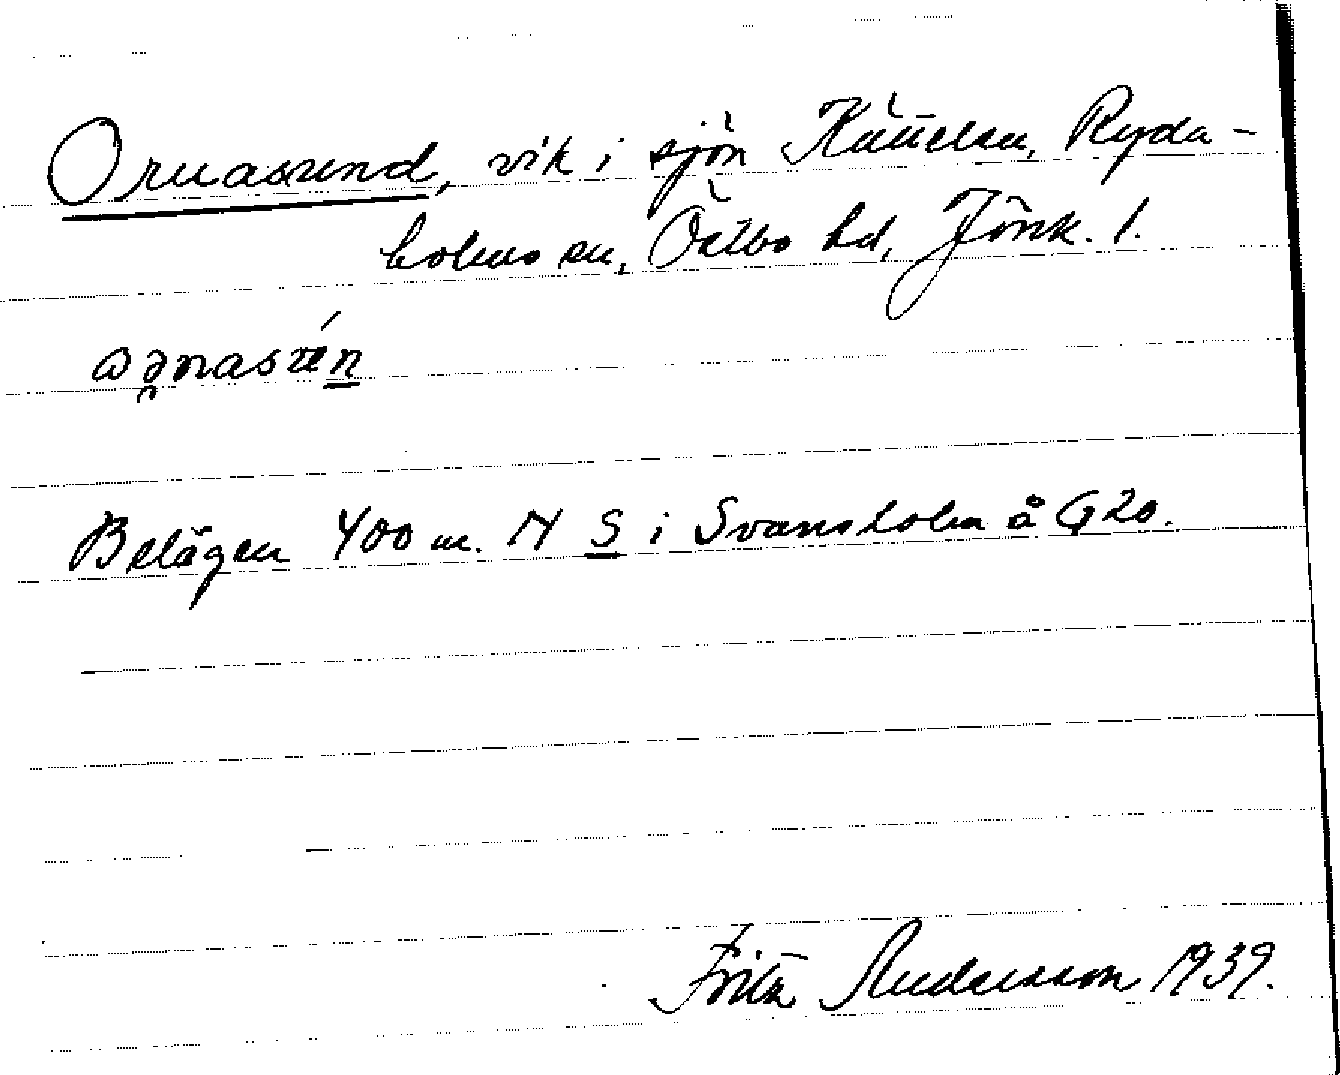 Ormasund, vik i sjön Hänelen, Ryda-
holms sn, Östbo hd, Jönk. l.
Belägen 400 m. N S i Svansholm å G 20.
Fritz Andersson 1939.